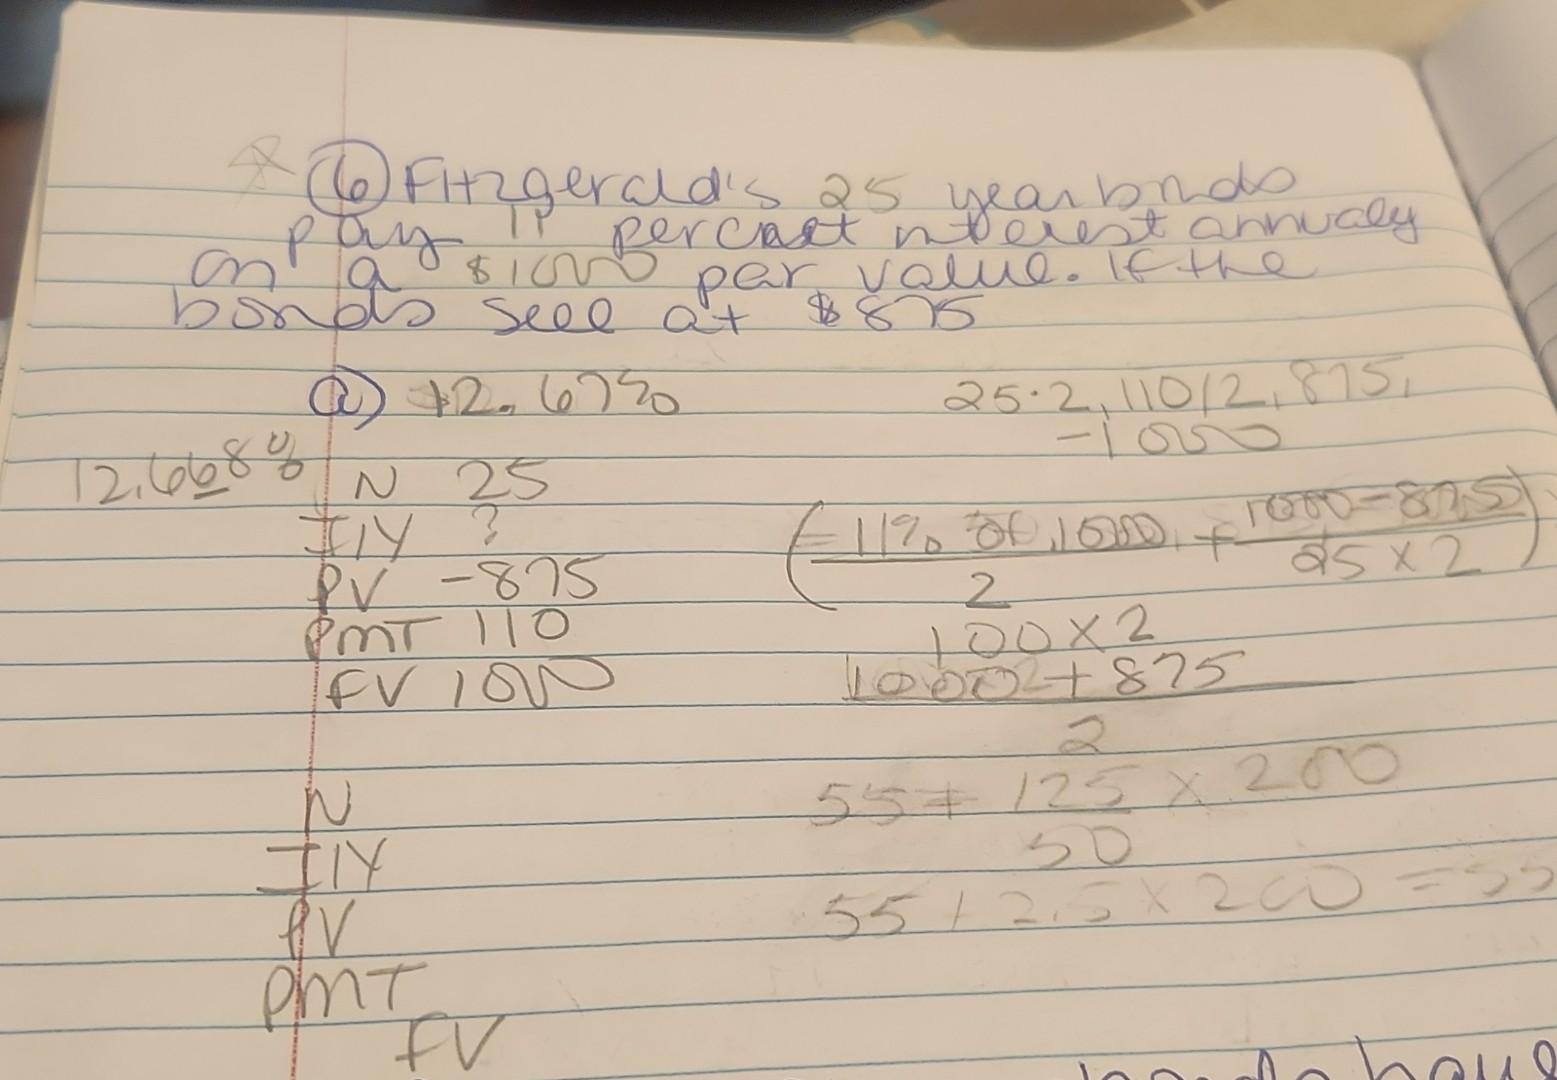 ⑥ Fitzgerald's 25 year bonds
pay 11 percent interest annualy
on a $1000 par value. If the
bonds sell at $875
a) 12.67%
25·2, 110/2, 875,
-1000
12.668%
N 25
I/Y ?
PV -875
PMT 110
FV 1000
(11% of 1000 + 1000-875)
2 25 x 2
100 x 2
1000 + 875
2
55 + 125 x 200
50
55 + 2.5 x 200 = 55
N
I/Y
PV
PMT
FV
have